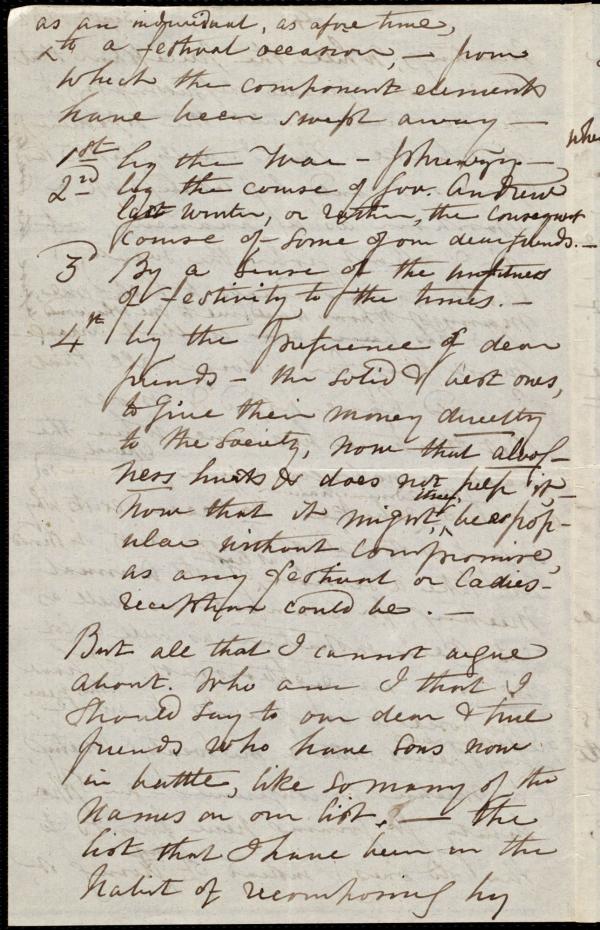 as an individual, as afore time,
^ to a festival occasion, — from
which the component elements
have been swept away —
1st by the War — 
2nd by the course of Gov. Andrew
last winter, or rather, the consequent
course of some of our dear friends. —
3d By a sense of the unfitness
of festivity to the times. —
4th by the preference of dear
friends — the solid & best ones,
to give their money directly
to the Society, now that aloof-
ness hurts & does not help it, —
now that it might, thus, be as pop-
ular without compromise,
as any festival or Ladies-
reception could be. —
But all that I cannot argue
about. Who am I that I
should say to our dear & true
friends who have sons now
in battle, like so many of the
names on our list, — the
list that I have been in the
habit of recomposing by